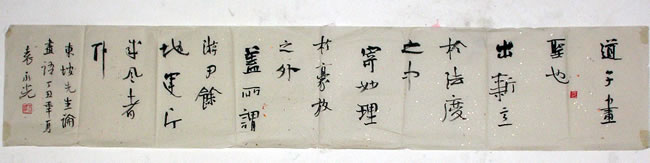 道子畫
聖也
出新意
於法度
之中
寄妙理
於豪放
之外
蓋所謂
游刃餘
地運斤
成風者
東坡先生論
畫語丁丑